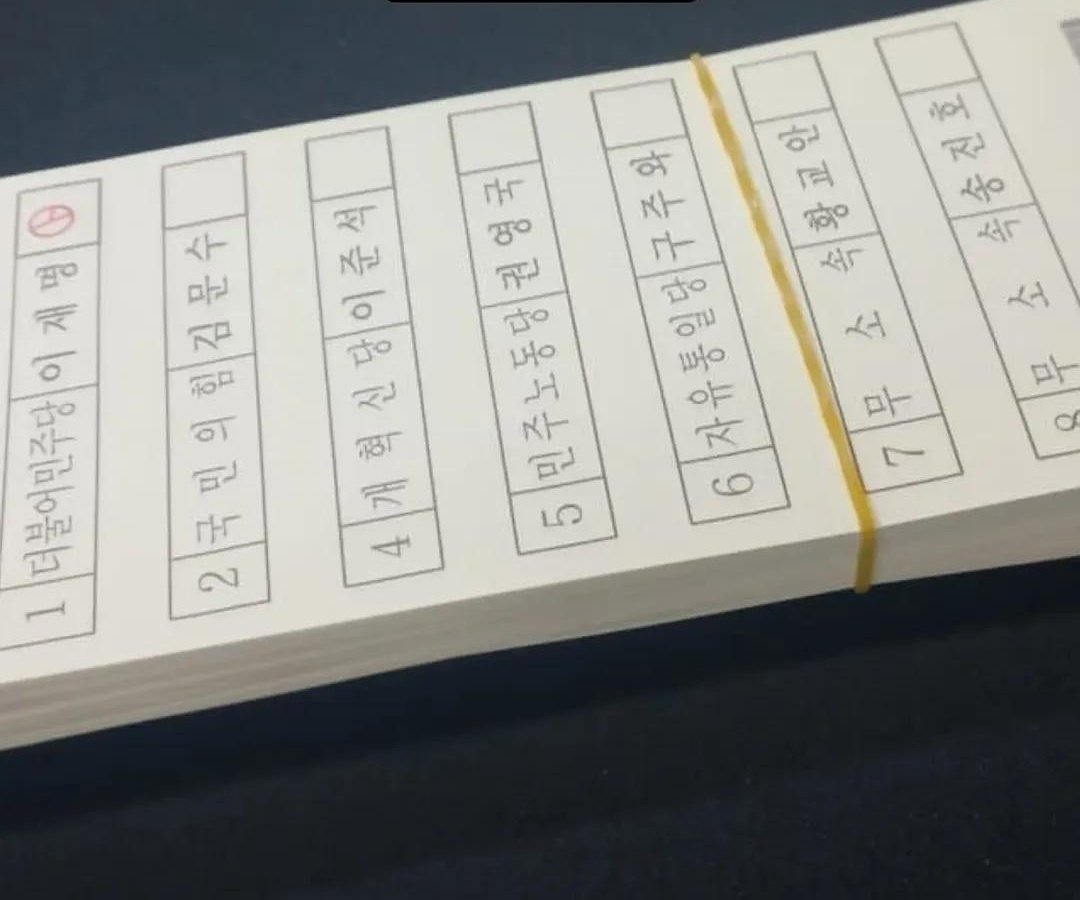 1 더불어민주당 이재명
2 국민의힘 김문수
4 개혁신당 이준석
5 민주노동당 권영국
6 자유통일당 구주와
7 무소속 황교안
8 무소속 송진호